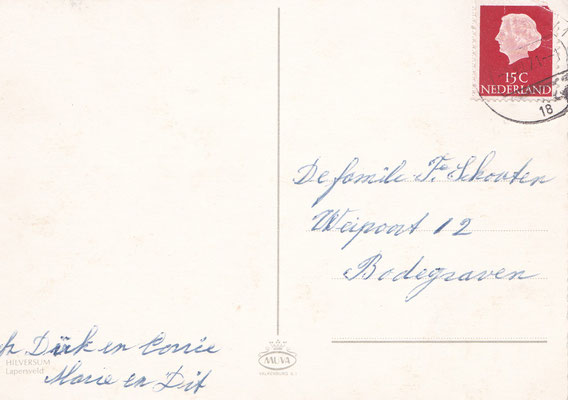 15 C
NEDERLAND
18
De familie Fr. Schouten
Weipoort 12
Bodegraven
Dirk en Corrie
Marie en Dit
HILVERSUM
Lapersveld
MUVA